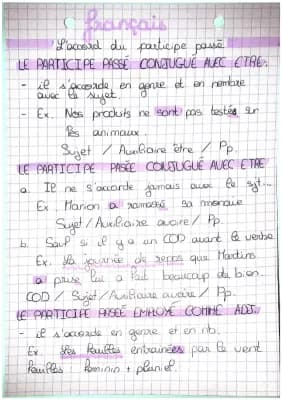 français
L'accord du participe passé
LE PARTICIPE PASSÉ CONJUGUÉ AVEC ETRE.
- il s'accorde en genre et en nombre
avec le sujet
- Ex. Nos produits ne sont pas testés sur
les animaux.
Sujet / Auxiliaire être / Pp.
LE PARTICIPE PASÉE CONJUGUÉ AVEC ETRE
a. Il ne s'accorde jamais avec le sjt...
Ex. Marion a ramassé sa manque
Sujet / Auxiliaire avoire / Pp.
b. Sauf si il y a un COD avant le verbe
Ex. La journée de repos que Martins
a prise lui a fait beaucoup de bien.
COD / Sujet / Auxiliaire avoire / Pp.
LE PARTICIPE PASÉE EMPLOYÉ COMME ADJ.
- il s'accorde en genre et en nb.
Ex. Les feuilles entrainées par le vent
feuilles : féminin + pluriel.